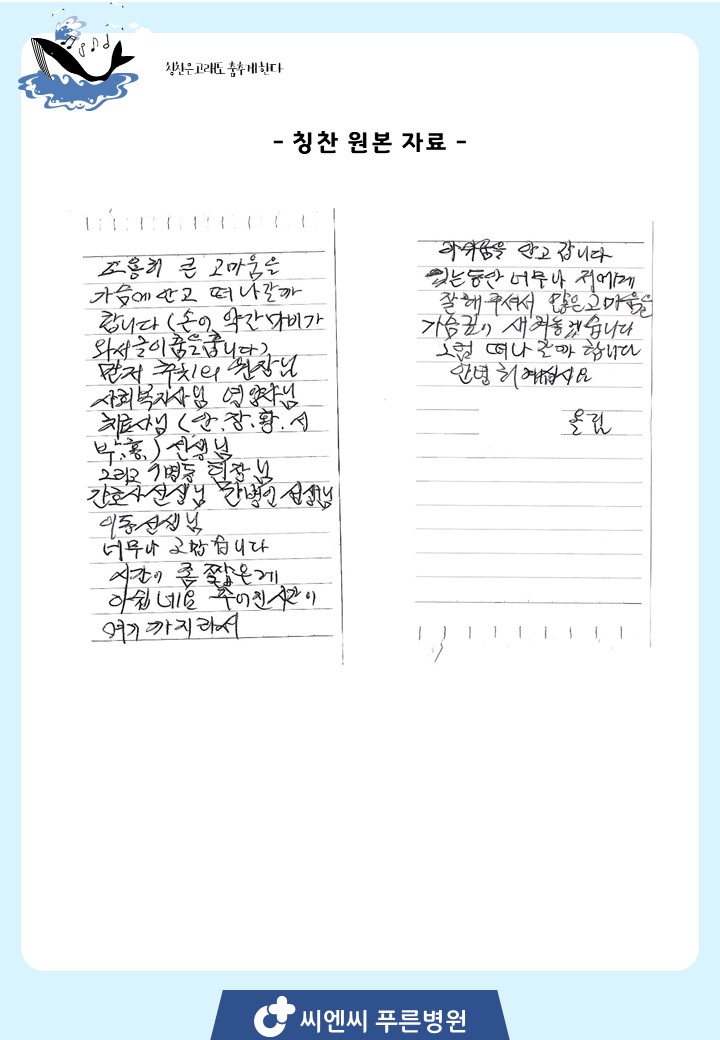 칭찬은 고래도 춤추게 한다
- 칭찬 원본 자료 -
조용히 큰 고마움을
가슴에 안고 떠나갈까
합니다 (손이 약간 마비가
와서 글이 춤을 춥니다)
먼저 주치의 원장님
사회복지사님 영양사님
치료사님 (안.장.황.서
박.홍.) 선생님
그리고 병동 팀장님
간호사 선생님 간병인 선생님
이동선생님
너무나 고맙습니다
시간이 좀 짧은게
아쉽네요 주어진 시간이
여기 까지라서
안고 갑니다
있는동안 너무나 저에게
잘 해 주셔서 많은 고마움을
가슴 새겨놓겠습니다
그럼 떠나 갈까 합니다
안녕히 계십시요
올림
씨엔씨 푸른병원